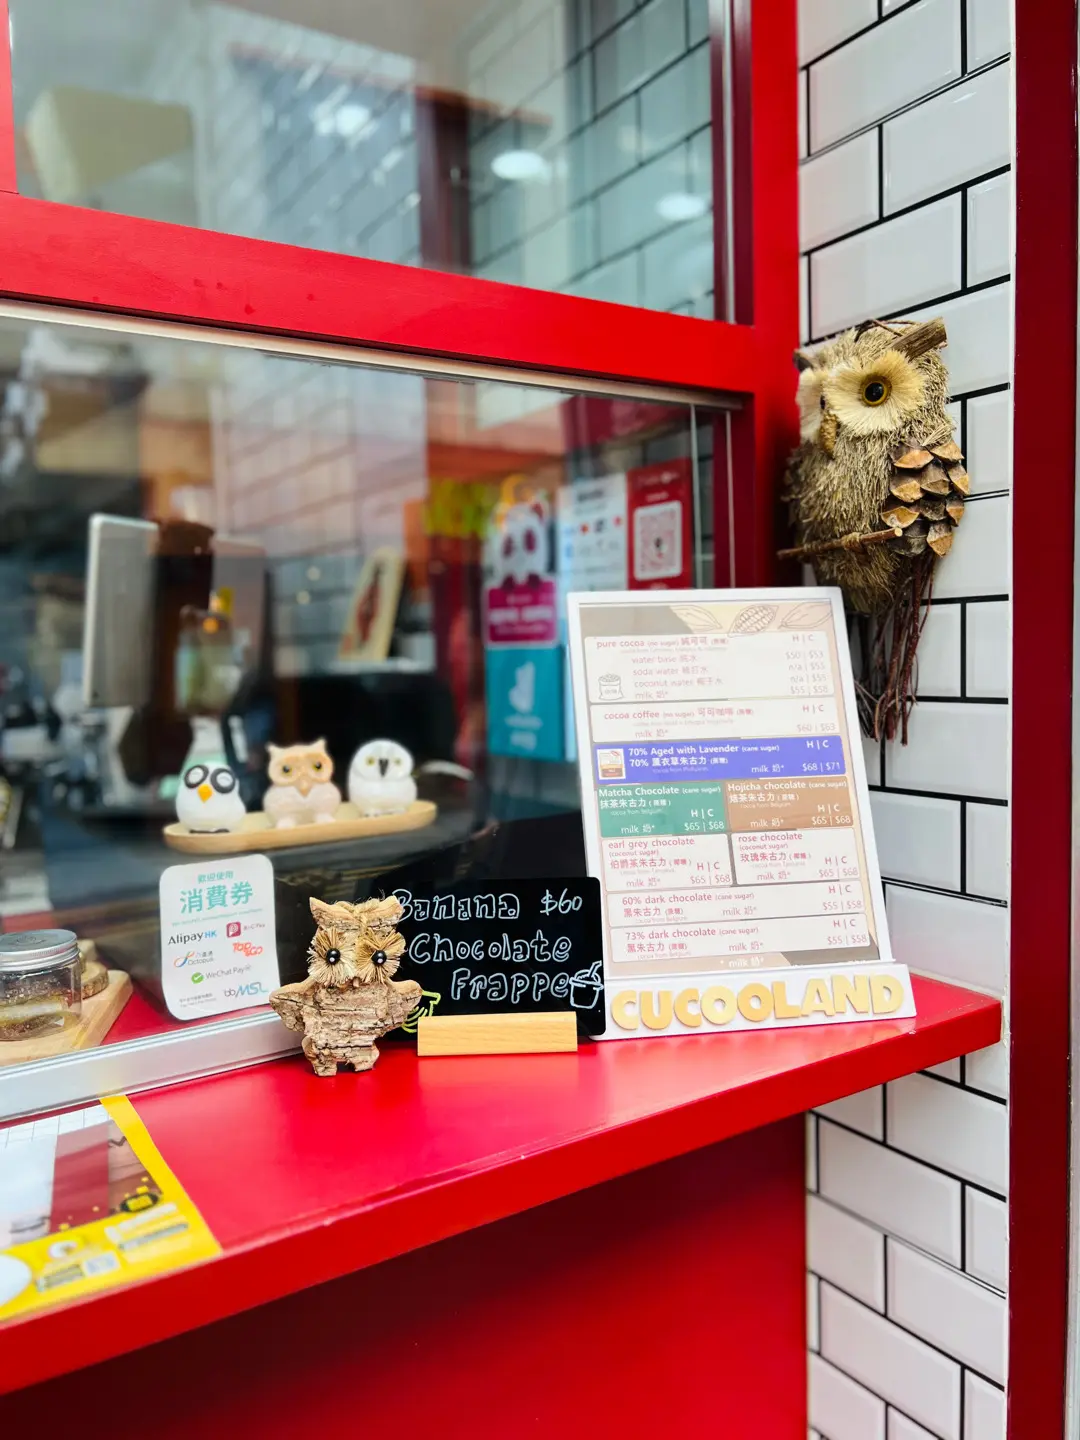 歡迎使用
消費券
AlipayHK
Octopus
TAP&GO
WeChat Pay
Banana $60
Chocolate
Frappe
pure cocoa (no sugar) 純可可 H | C
water base 純水 $50 | $53
soda water 梳打水 n/a | $55
coconut water 椰子水 n/a | $55
milk 奶* $55 | $58
cocoa coffee (no sugar) 可可咖啡 H | C
milk 奶* $60 | $63
70% Aged with Lavender (cane sugar) H | C
70% 薰衣草朱古力 (蔗糖)
milk 奶* $68 | $71
Matcha Chocolate (cane sugar)
抹茶朱古力 (蔗糖)
cocoa from Belgium H | C
milk 奶* $65 | $68
Hojicha chocolate (cane sugar)
焙茶朱古力 (蔗糖)
cocoa from Belgium H | C
milk 奶* $65 | $68
earl grey chocolate
(coconut sugar)
伯爵茶朱古力 (椰糖) H | C
milk 奶* $65 | $68
rose chocolate
(coconut sugar)
玫瑰朱古力 (椰糖) H | C
milk 奶* $65 | $68
60% dark chocolate (cane sugar) H | C
黑朱古力 (蔗糖) milk 奶* $55 | $58
73% dark chocolate (cane sugar) H | C
黑朱古力 (蔗糖) milk 奶* $55 | $58
* milk 奶*
CUCOOLAND